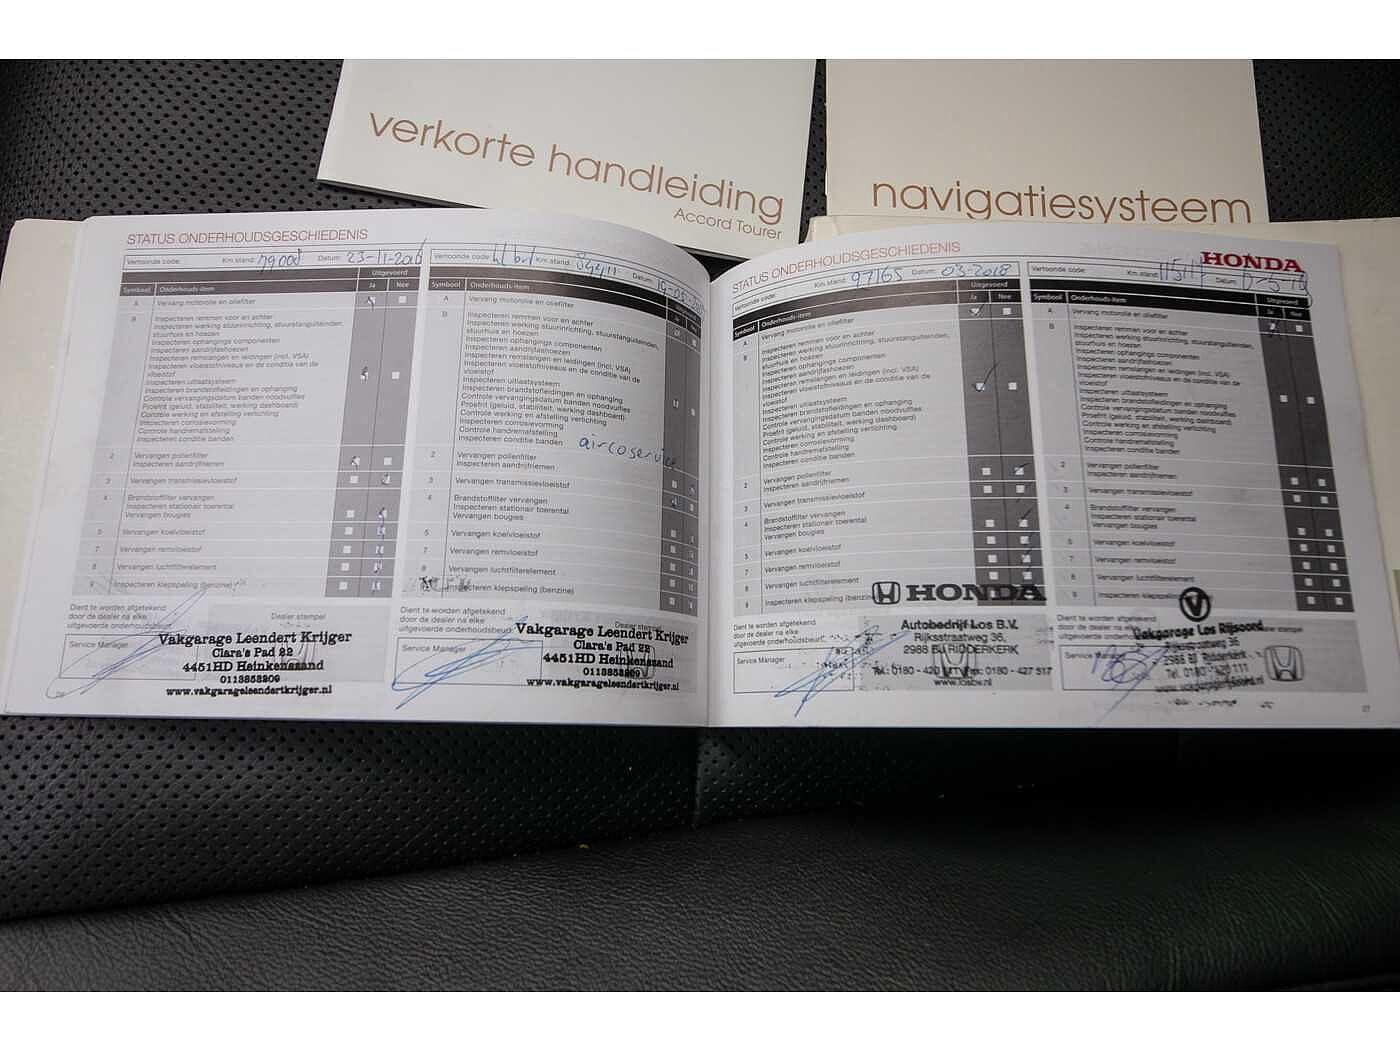 verkorte handleiding
Accord Tourer
navigatiesysteem
STATUS ONDERHOUDSGESCHIEDENIS
Vertoonde code: Km stand: 79000 Datum: 23-11-2016
Uitgevoerd
Symbool Onderhouds-item Ja Nee
A Vervang motorolie en oliefilter
B Inspecteren remmen voor en achter
Inspecteren werking stuurinrichting, stuurstanguiteinden,
stuurhuis en hoezen
Inspecteren ophangings componenten
Inspecteren aandrijfashoezen
Inspecteren remslangen en leidingen (incl. VSA)
Inspecteren vloeistofniveaus en de conditie van de
vloeistof
Inspecteren uitlaatsysteem
Inspecteren brandstofleidingen en ophanging
Controle vervangingsdatum banden noodvulfles
Proefrit (geluid, stabiliteit, werking dashboard)
Controle werking en afstelling verlichting
Inspecteren corrosievorming
Controle handremafstelling
Inspecteren conditie banden
2 Vervangen pollenfilter
Inspecteren aandrijfriemen
3 Vervangen transmissievloeistof
4 Brandstoffilter vervangen
Inspecteren stationair toerental
Vervangen bougies
5 Vervangen koelvloeistof
7 Vervangen remvloeistof
8 Vervangen luchtfilterelement
9 Inspecteren klepspeling (benzine)
Dient te worden afgetekend
door de dealer na elke
uitgevoerde onderhoudsbeurt
Dealer stempel
Service Manager
Vakgarage Leendert Krijger
Clara's Pad 22
4451HD Heinkenszand
0113563209
www.vakgarageleendertkrijger.nl
Vertoonde code: Km stand: Datum:
Uitgevoerd
Symbool Onderhouds-item Ja Nee
A Vervang motorolie en oliefilter
B Inspecteren remmen voor en achter
Inspecteren werking stuurinrichting, stuurstanguiteinden,
stuurhuis en hoezen
Inspecteren ophangings componenten
Inspecteren aandrijfashoezen
Inspecteren remslangen en leidingen (incl. VSA)
Inspecteren vloeistofniveaus en de conditie van de
vloeistof
Inspecteren uitlaatsysteem
Inspecteren brandstofleidingen en ophanging
Controle vervangingsdatum banden noodvulfles
Proefrit (geluid, stabiliteit, werking dashboard)
Controle werking en afstelling verlichting
Inspecteren corrosievorming
Controle handremafstelling
Inspecteren conditie banden
aircoservice
2 Vervangen pollenfilter
Inspecteren aandrijfriemen
3 Vervangen transmissievloeistof
4 Brandstoffilter vervangen
Inspecteren stationair toerental
Vervangen bougies
5 Vervangen koelvloeistof
7 Vervangen remvloeistof
8 Vervangen luchtfilterelement
Inspecteren klepspeling (benzine)
Dient te worden afgetekend
door de dealer na elke
uitgevoerde onderhoudsbeurt
Dealer stempel
Service Manager
Vakgarage Leendert Krijger
Clara's Pad 22
4451HD Heinkenszand
www.vakgarageleendertkrijger.nl
STATUS ONDERHOUDSGESCHIEDENIS
Vertoonde code: Km stand: 97165 Datum: 03-2018
Uitgevoerd
Symbool Onderhouds-item Ja Nee
A Vervang motorolie en oliefilter
B Inspecteren remmen voor en achter
Inspecteren werking stuurinrichting, stuurstanguiteinden,
stuurhuis en hoezen
Inspecteren ophangings componenten
Inspecteren aandrijfashoezen
Inspecteren remslangen en leidingen (incl. VSA)
Inspecteren vloeistofniveaus en de conditie van de
vloeistof
Inspecteren uitlaatsysteem
Inspecteren brandstofleidingen en ophanging
Controle vervangingsdatum banden noodvulfles
Proefrit (geluid, stabiliteit, werking dashboard)
Controle werking en afstelling verlichting
Inspecteren corrosievorming
Controle handremafstelling
Inspecteren conditie banden
2 Vervangen pollenfilter
Inspecteren aandrijfriemen
3 Vervangen transmissievloeistof
4 Brandstoffilter vervangen
Inspecteren stationair toerental
Vervangen bougies
5 Vervangen koelvloeistof
7 Vervangen remvloeistof
8 Vervangen luchtfilterelement
9 Inspecteren klepspeling (benzine)
HONDA
Dient te worden afgetekend
door de dealer na elke
uitgevoerde onderhoudsbeurt
Service Manager
Autobedrijf Los B.V.
Rijksstraatweg 36,
2988 BJ RIDDERKERK
Fax: 0180 - 427 517
www.losbv.nl
HONDA
Vertoonde code: Km stand: Datum:
Uitgevoerd
Symbool Onderhouds-item Ja Nee
A Vervang motorolie en oliefilter
B Inspecteren remmen voor en achter
Inspecteren werking stuurinrichting, stuurstanguiteinden,
stuurhuis en hoezen
Inspecteren ophangings componenten
Inspecteren aandrijfashoezen
Inspecteren remslangen en leidingen (incl. VSA)
Inspecteren vloeistofniveaus en de conditie van de
vloeistof
Inspecteren uitlaatsysteem
Inspecteren brandstofleidingen en ophanging
Controle vervangingsdatum banden noodvulfles
Proefrit (geluid, stabiliteit, werking dashboard)
Controle werking en afstelling verlichting
Inspecteren corrosievorming
Controle handremafstelling
Inspecteren conditie banden
2 Vervangen pollenfilter
Inspecteren aandrijfriemen
3 Vervangen transmissievloeistof
4 Brandstoffilter vervangen
Inspecteren stationair toerental
Vervangen bougies
5 Vervangen koelvloeistof
7 Vervangen remvloeistof
8 Vervangen luchtfilterelement
9 Inspecteren klepspeling (benzine)
Dient te worden afgetekend
door de dealer na elke
uitgevoerde onderhoudsbeurt
stempel
Service Manager
Vakgarage Los Rijsoord
Rijksstraatweg 36
2988 BJ Ridderkerk
Tel. 0180 - 420 111
www.vakgaragelosrijsoord.nl
07